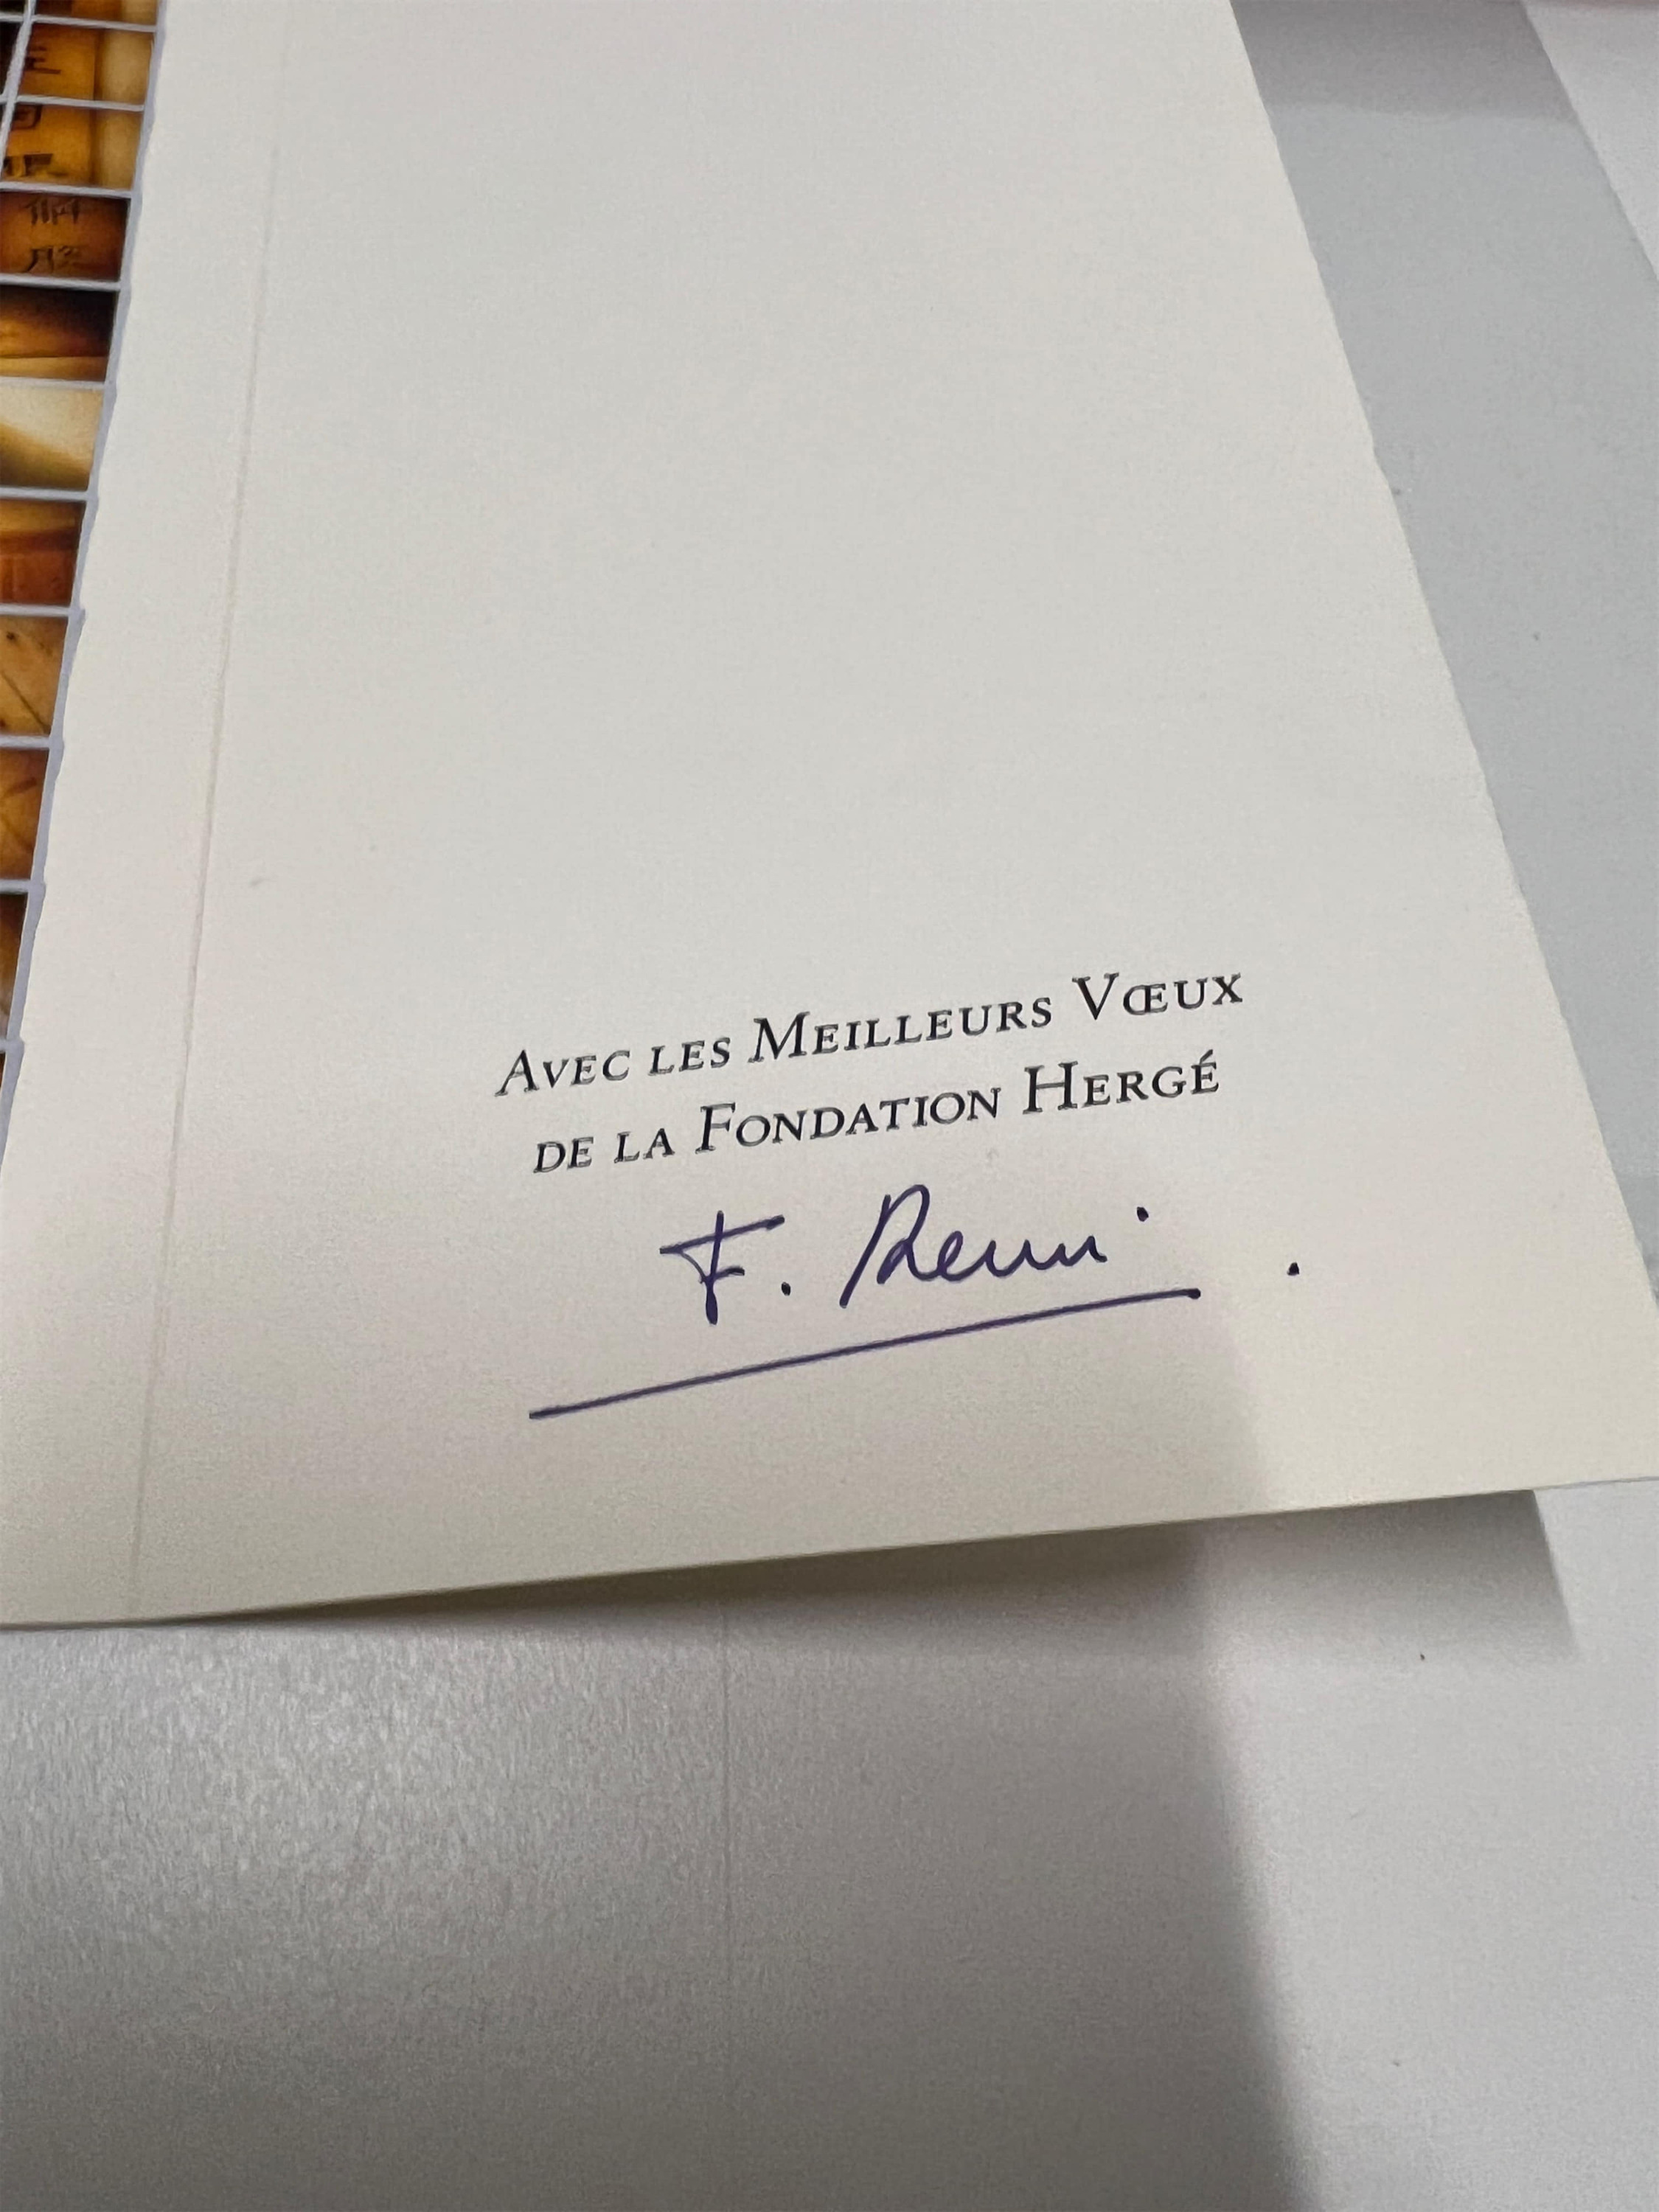 AVEC LES MEILLEURS VŒUX
DE LA FONDATION HERGÉ
F. Remi.